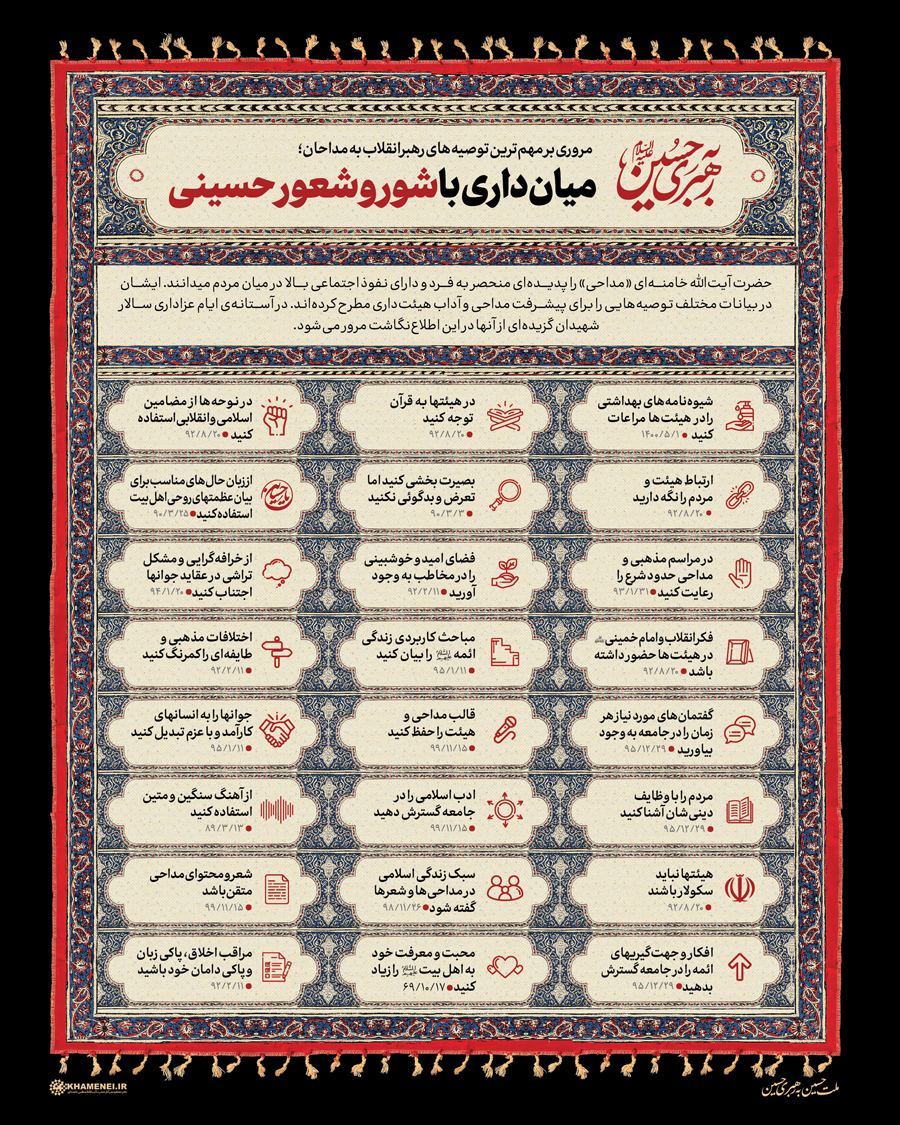 به رهبری حسین علیه‌السلام
مروری بر مهم‌ترین توصیه‌های رهبر انقلاب به مداحان؛
میان‌داری با شور و شعور حسینی
حضرت آیت‌الله خامنه‌ای «مداحی» را پدیده‌ای منحصر به فرد و دارای نفوذ اجتماعی بالا در میان مردم میدانند. ایشان
در بیانات مختلف توصیه‌هایی را برای پیشرفت مداحی و آداب هیئت‌داری مطرح کرده‌اند. در آستانه‌ی ایام عزاداری سالار
شهیدان گزیده‌ای از آنها در این اطلاع‌نگاشت مرور می‌شود.
شیوه‌نامه‌های بهداشتی
را در هیئت‌ها مراعات
کنید ● ۱۴۰۰/۵/۱
در هیئتها به قرآن
توجه کنید
● ۹۲/۸/۲۰
در نوحه‌ها از مضامین
اسلامی و انقلابی استفاده
کنید ● ۹۲/۸/۲۰
ارتباط هیئت و
مردم را نگه دارید
● ۹۲/۸/۲۰
بصیرت بخشی کنید اما
تعرض و بدگوئی نکنید
● ۹۰/۳/۳
از زبان حال‌های مناسب برای
بیان عظمتهای روحی اهل بیت
استفاده کنید ● ۹۰/۳/۲۵
در مراسم مذهبی و
مداحی حدود شرع را
رعایت کنید ● ۹۳/۱/۳۱
فضای امید و خوشبینی
را در مخاطب به وجود
آورید ● ۹۲/۲/۱۱
از خرافه‌گرایی و مشکل
تراشی در عقاید جوانها
اجتناب کنید ● ۹۴/۱/۲۰
فکر انقلاب و امام خمینی
در هیئت‌ها حضور داشته
باشد ● ۹۲/۸/۲۰
مباحث کاربردی زندگی
ائمه را بیان کنید
● ۹۵/۱/۱۱
اختلافات مذهبی و
طایفه‌ای را کمرنگ کنید
● ۹۲/۲/۱۱
گفتمان‌های مورد نیاز هر
زمان را در جامعه به وجود
بیاورید ● ۹۵/۱۲/۲۹
قالب مداحی و
هیئت را حفظ کنید
● ۹۹/۱۱/۱۵
جوانها را به انسانهای
کارآمد و با عزم تبدیل کنید
● ۹۵/۱/۱۱
مردم را با وظایف
دینی‌شان آشنا کنید
● ۹۵/۱۲/۲۹
ادب اسلامی را در
جامعه گسترش دهید
● ۹۹/۱۱/۱۵
از آهنگ سنگین و متین
استفاده کنید
● ۸۹/۳/۱۳
هیئتها نباید
سکولار باشند
● ۹۲/۸/۲۰
سبک زندگی اسلامی
در مداحی‌ها و شعرها
گفته شود ● ۹۸/۱۱/۲۶
شعر و محتوای مداحی
متقن باشد
● ۹۹/۱۱/۱۵
افکار و جهت‌گیریهای
ائمه را در جامعه گسترش
بدهید ● ۹۵/۱۲/۲۹
محبت و معرفت خود
به اهل بیت را زیاد
کنید ● ۶۹/۱۰/۱۷
مراقب اخلاق، پاکی زبان
و پاکی دامان خود باشید
● ۹۲/۲/۱۱
KHAMENEI.IR
ملت حسین به رهبری حسین